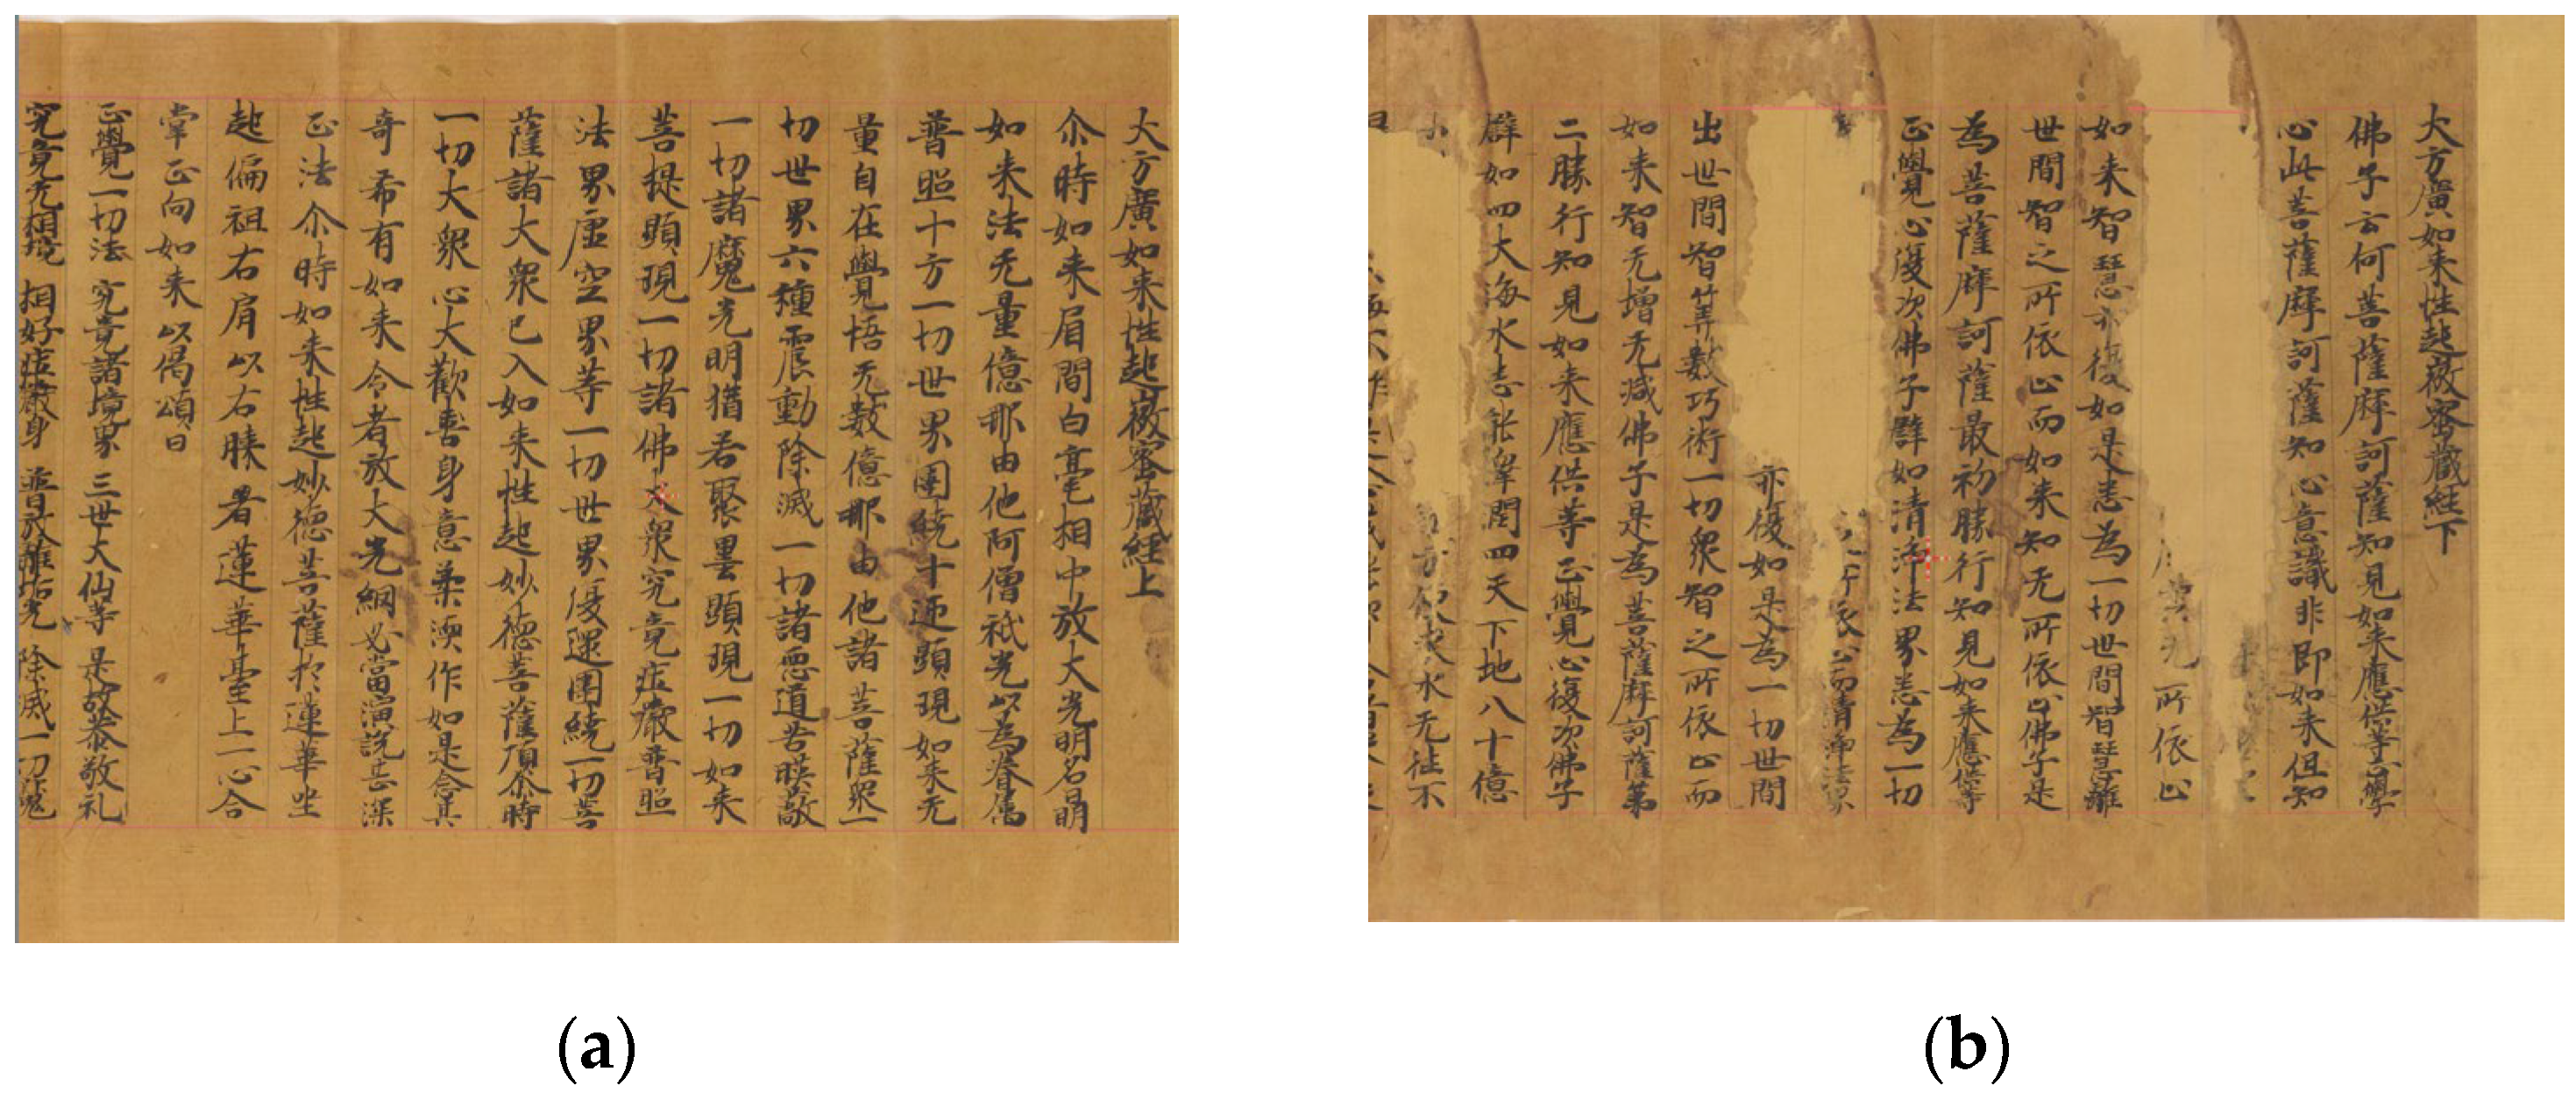 大方廣如来性起㣲宻藏経上
尒時如来眉間白毫相中放大光明名曰明
如来法无量億那由他阿僧祇光以為眷属
普照十方一切世界圍繞十迊顕現如来无
量自在覺悟无數億那由他諸菩薩眾一
切世界六種震動除滅一切諸惡道苦暎蔽
一切諸魔光明猶若聚墨顕現一切如来
菩提顕現一切諸佛大眾究竟荘嚴普照
法界虛空界等一切世界復還圍繞一切菩
薩諸大眾已入如来性起妙德菩薩頂尒時
一切大眾心大歡喜身意柔濡作如是念甚
奇希有如来令者放大光網必當演說甚深
正法尒時如来性起妙德菩薩於蓮華坐
起偏袒右肩以右膝著蓮華臺上一心合
掌正向如来以偈頌曰
正覺一切法 究竟諸境界 三世大仙等 是故恭敬礼
究竟无相境 相好荘嚴身 普放離垢光 除滅一切魔
(a)
大方廣如来性起㣲宻藏経下
佛子云何菩薩摩訶薩知見如来應供等正覺
心此菩薩摩訶薩知心意識非即如来但知
无所依止
如来智慧亦復如是悉為一切世間智慧離
世間智之所依止而如来知无所依止佛子是
為菩薩摩訶薩最初勝行知見如来應供等
正覺心復次佛子辟如清淨法界悉為一切
所依止而清淨法界
亦復如是為一切世間
出世間智筭數巧術一切眾智之所依止而
如来智无增无減佛子是為菩薩摩訶薩第
二勝行知見如来應供等正覺心復次佛子
辟如四大海水悉能潤四天下地八十億
水无徃不
(b)